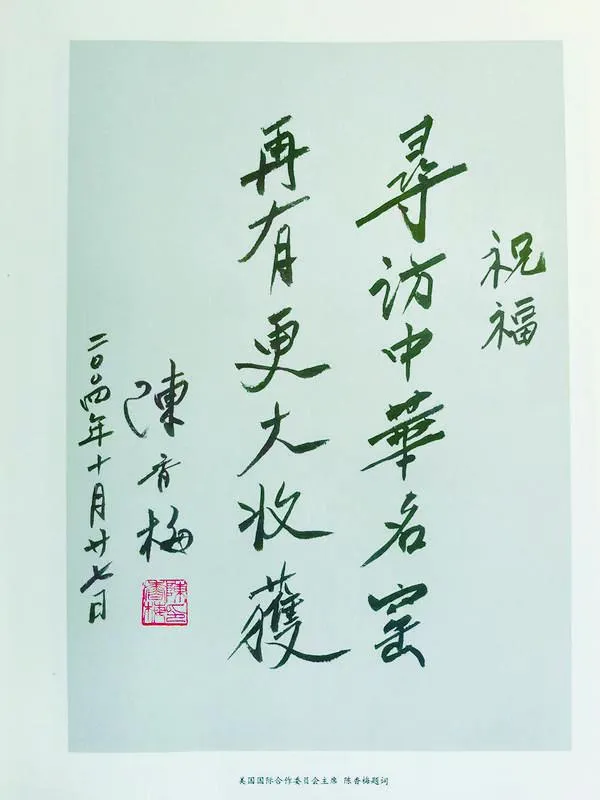 祝福
尋訪中華名窑
再有更大收獲
陳香梅
二〇〇四年十月廿七日
陳香梅印
美国国际合作委员会主席 陈香梅题词